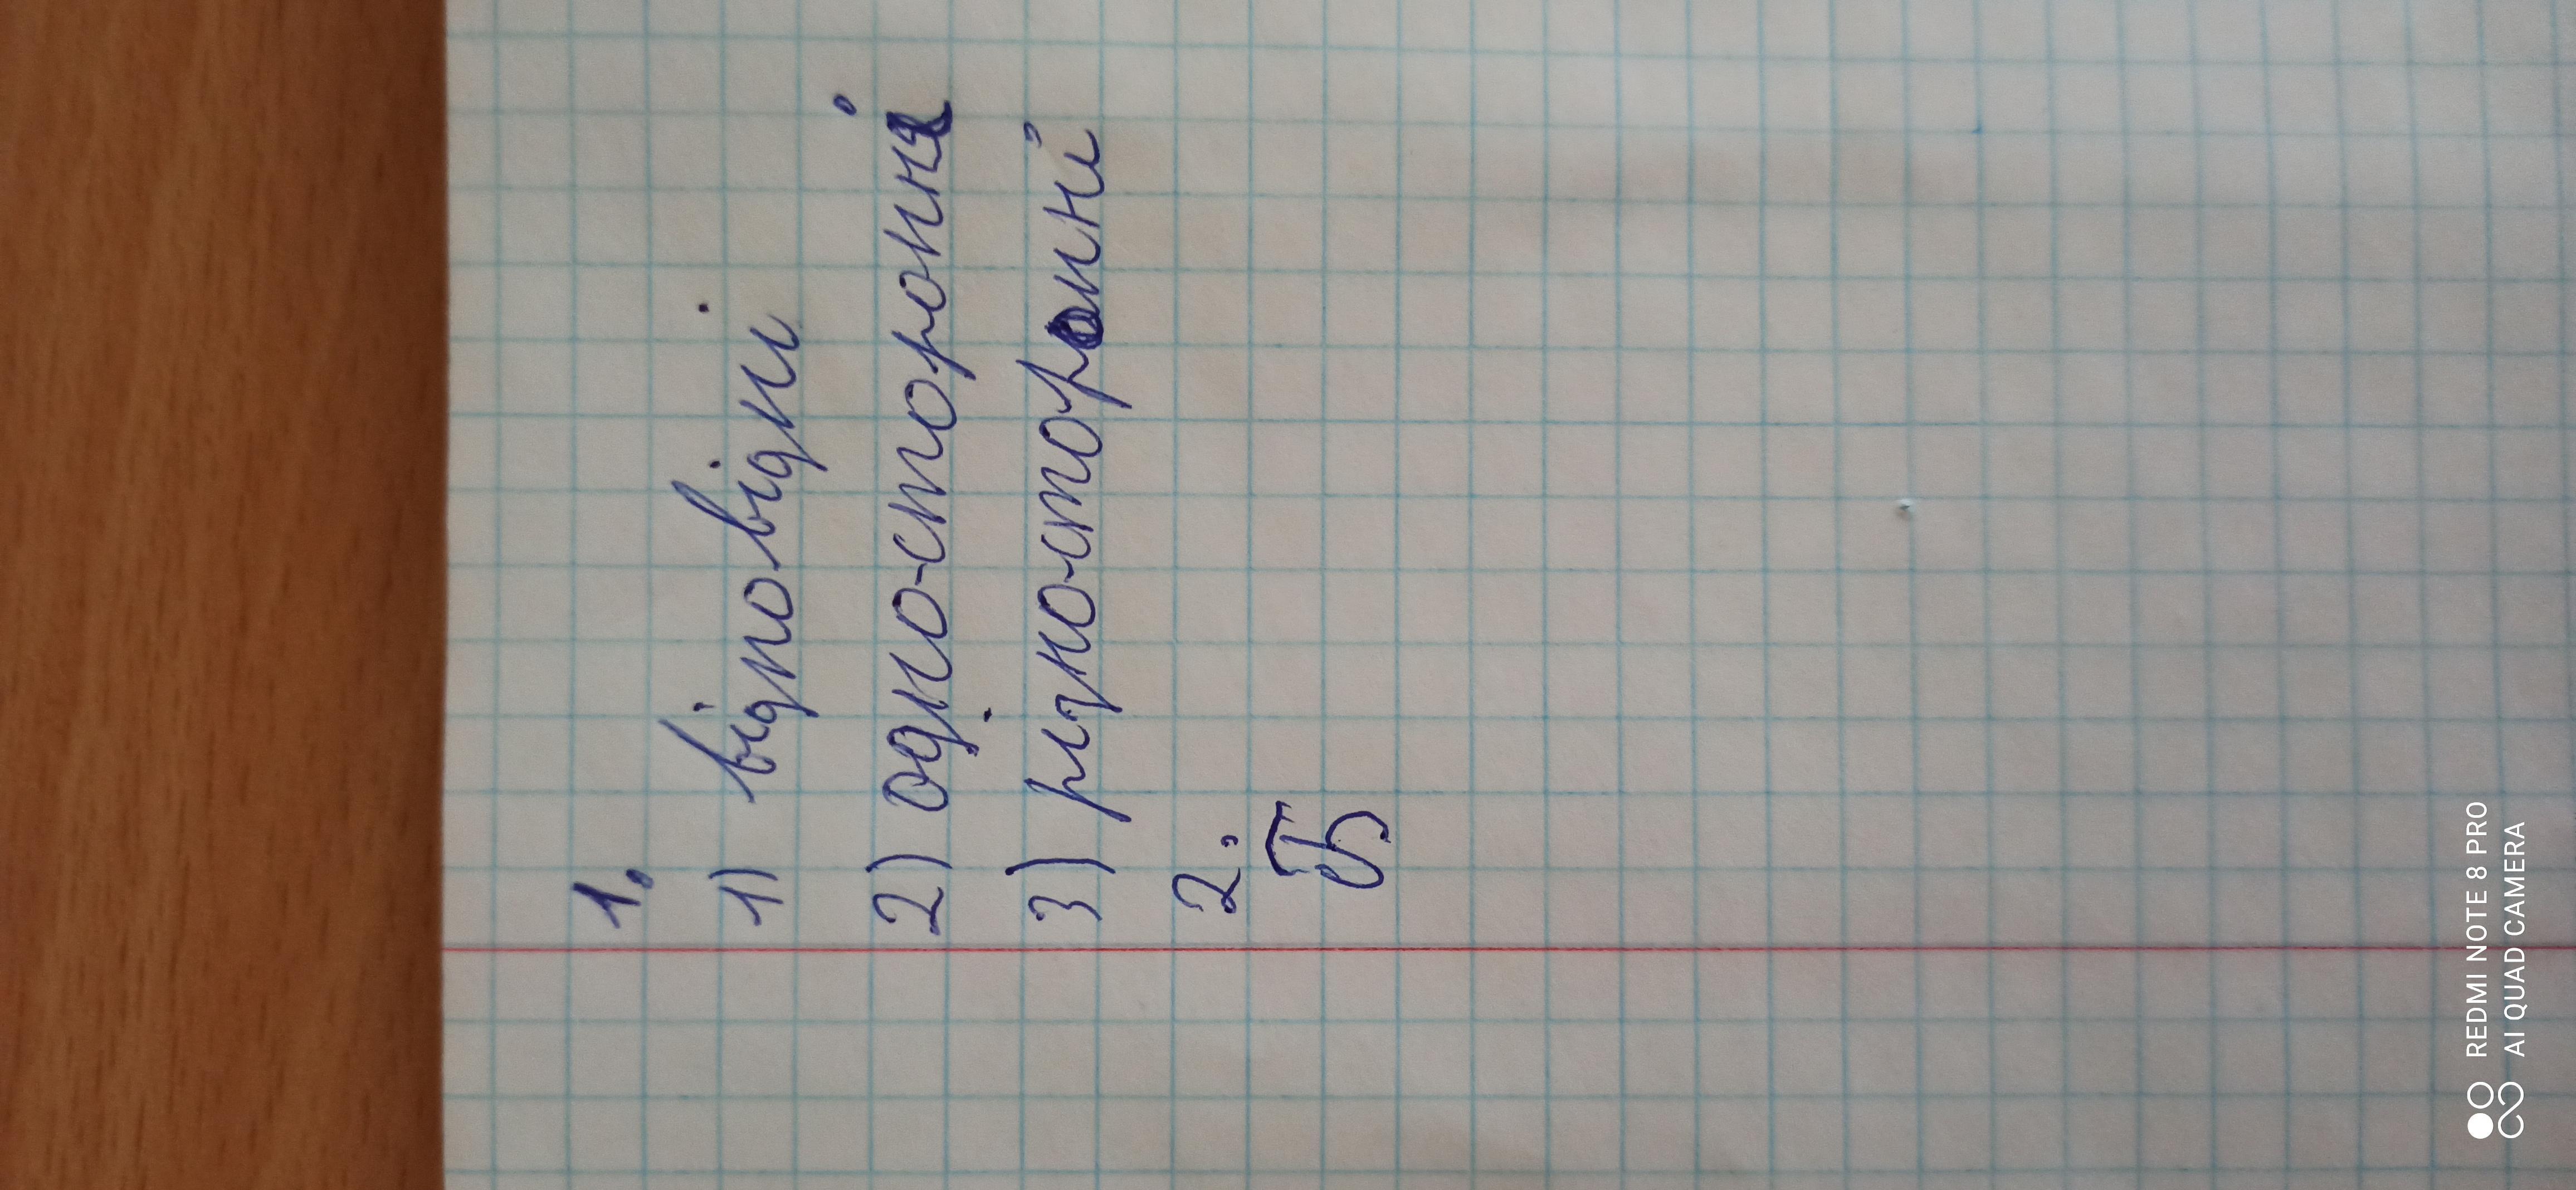 1.
1) відповідні
2) односторонні
3) різносторонні
2.
Б
REDMI NOTE 8 PRO
AI QUAD CAMERA